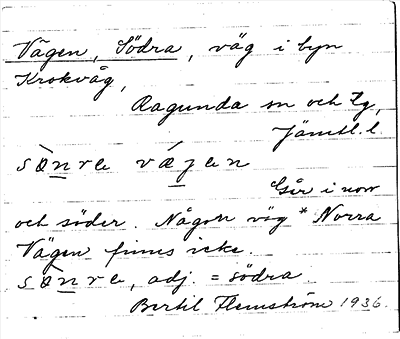 Vägen, Södra, väg i byn
Krokvåg,
Ragunda sn och tg,
Jämtl. l.
sènre vǽjen
Går i norr
och söder. Någon väg * Norra
Vägen finns icke.
sènre, adj. = södra
Bertil Flemström 1936.